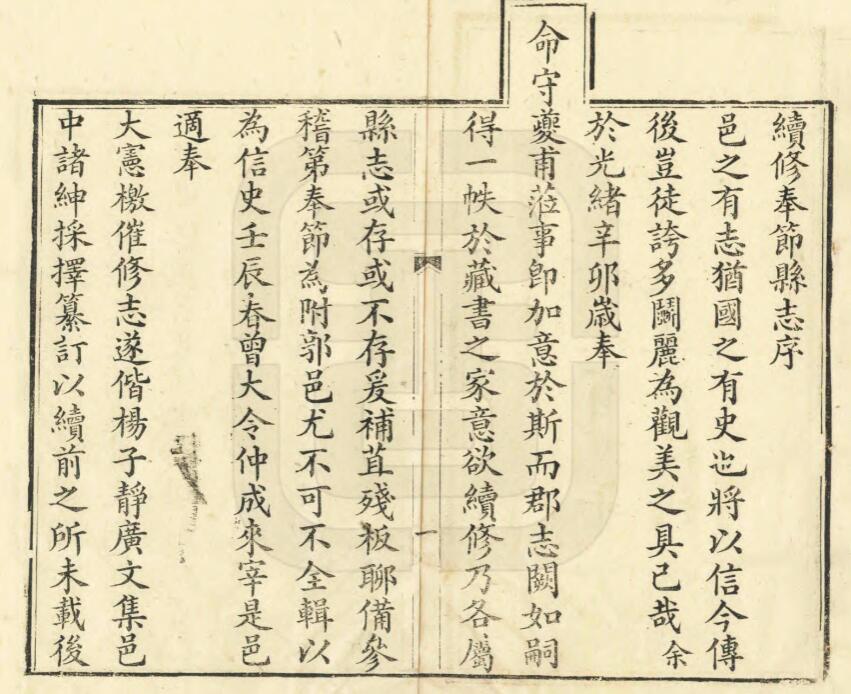 續修奉節縣志序
邑之有志猶國之有史也將以信今傳
後豈徒誇多鬬麗為觀美之具已哉余
於光緒辛卯歲奉
命守夔甫蒞事卽加意於斯而郡志闕如嗣
得一帙於藏書之家意欲續修乃各屬
一
縣志或存或不存爰補苴殘板聊備參
稽第奉節為附郭邑尤不可不全輯以
為信史壬辰春曾大令仲成來宰是邑
適奉
大憲檄催修志遂偕楊子靜廣文集邑
中諸紳採擇纂訂以續前之所未載後